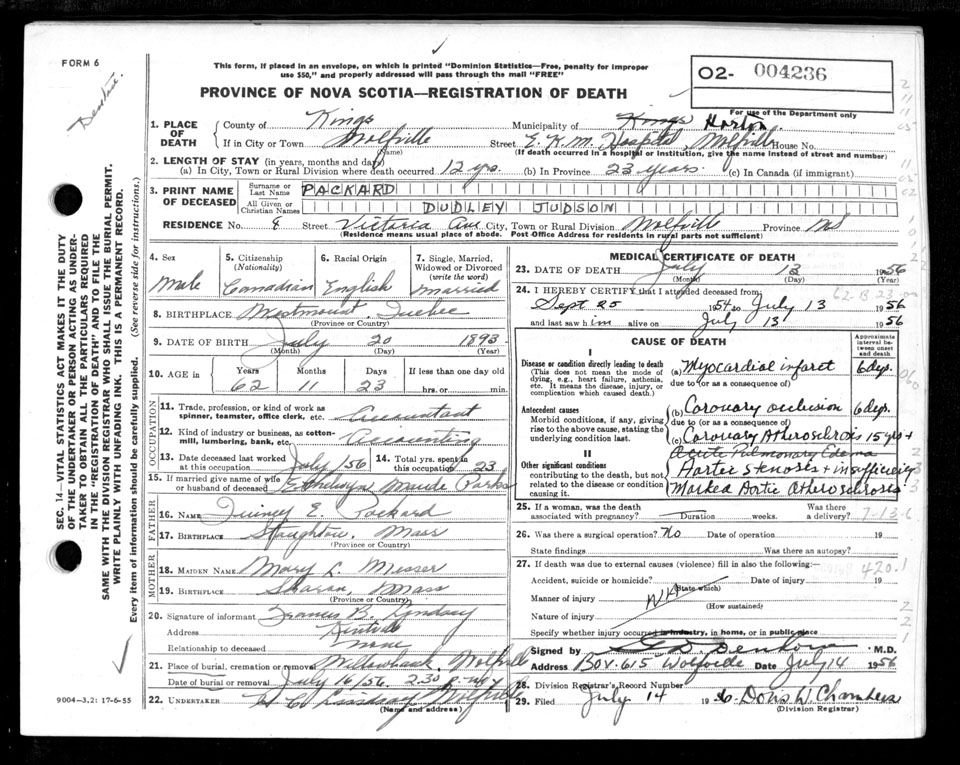 FORM 6
This form, if placed in an envelope, on which is printed "Dominion Statistics—Free, penalty for improper
use $50," and properly addressed will pass through the mail "FREE"
O2- 004236
For use of the Department only
PROVINCE OF NOVA SCOTIA—REGISTRATION OF DEATH
1. PLACE OF DEATH County of Kings Municipality of Kings Horton
If in City or Town Wolfville Street E. K. M. Hospital, Wolfville House No.
(Name) (If death occurred in a hospital or institution, give the name instead of street and number)
2. LENGTH OF STAY (in years, months and days)
(a) In City, Town or Rural Division where death occurred 12 yrs. (b) In Province 23 years. (c) In Canada (if immigrant)
3. PRINT NAME OF DECEASED Surname or Last Name PACKARD
All Given or Christian Names DUDLEY JUDSON
RESIDENCE No. 8 Street Victoria Ave City, Town or Rural Division Wolfville Province NS
(Residence means usual place of abode. Post Office Address for residents in rural parts not sufficient)
4. Sex Male
5. Citizenship (Nationality) Canadian
6. Racial Origin English
7. Single, Married, Widowed or Divorced (write the word) Married
8. BIRTHPLACE Westmount, Quebec
(Province or Country)
9. DATE OF BIRTH July 20 1893
(Month) (Day) (Year)
10. AGE in Years Months Days If less than one day old
62 11 23 hrs. or min.
OCCUPATION
11. Trade, profession, or kind of work as spinner, teamster, office clerk, etc. Accountant
12. Kind of industry or business, as cotton-mill, lumbering, bank, etc. Accounting
13. Date deceased last worked at this occupation July /56 14. Total yrs. spent in this occupation 23
15. If married give name of wife or husband of deceased Ethelwyn Maude Parks
FATHER
16. NAME Quincy E. Packard
17. BIRTHPLACE Stoughton, Mass
(Province or Country)
MOTHER
18. MAIDEN NAME Mary L. Messer
19. BIRTHPLACE Sharon, Mass
(Province or Country)
20. Signature of informant Francis B. Lindsay
Address Kentville
Relationship to deceased none
21. Place of burial, cremation or removal Willowbank, Wolfville
Date of burial or removal July 16/56 2.30
22. UNDERTAKER Lindsay Wolfville
(Name and address)
MEDICAL CERTIFICATE OF DEATH
23. DATE OF DEATH July 13 1956
(Month) (Day) (Year)
24. I HEREBY CERTIFY that I attended deceased from:
Sept 25 1954 to July 13 1956
and last saw him alive on July 13 1956
CAUSE OF DEATH
Approximate interval between onset and death
I
Disease or condition directly leading to death
(This does not mean the mode of dying, e.g., heart failure, asthenia, etc. It means the disease, injury, or complication which caused death.)
(a) Myocardial infarct 6 dys.
due to (or as a consequence of)
Antecedent causes
Morbid conditions, if any, giving rise to the above cause, stating the underlying condition last.
(b) Coronary occlusion 6 dys.
due to (or as a consequence of)
(c) Coronary Atherosclrois 15 yrs +
II
Other significant conditions
contributing to the death, but not related to the disease or condition causing it.
Acute Pulmonary Edema
Aortic stenosis + insufficiency
Marked Aortic Atherosclerosis
25. If a woman, was the death associated with pregnancy? Duration weeks. Was there a delivery?
26. Was there a surgical operation? No Date of operation 19
State findings Was there an autopsy?
27. If death was due to external causes (violence) fill in also the following: 420.1
Accident, suicide or homicide? Date of injury 19
(State which)
Manner of injury
(How sustained)
Nature of injury
Specify whether injury occurred in industry, in home, or in public place
Signed by M.D.
Address Box 615 Wolfville Date July 14 1956
28. Division Registrar's Record Number
29. Filed July 14 1956 Doris W. Chambers
(Division Registrar)
SEC. 14—VITAL STATISTICS ACT MAKES IT THE DUTY
OF THE UNDERTAKER OR PERSON ACTING AS UNDER-
TAKER TO OBTAIN ALL THE PARTICULARS REQUIRED
IN THE "REGISTRATION OF DEATH" AND TO FILE THE
SAME WITH THE DIVISION REGISTRAR WHO SHALL ISSUE THE BURIAL PERMIT.
WRITE PLAINLY WITH UNFADING INK. THIS IS A PERMANENT RECORD.
Every item of information should be carefully supplied. (See reverse side for instructions.)
9004-3.2: 17-6-55